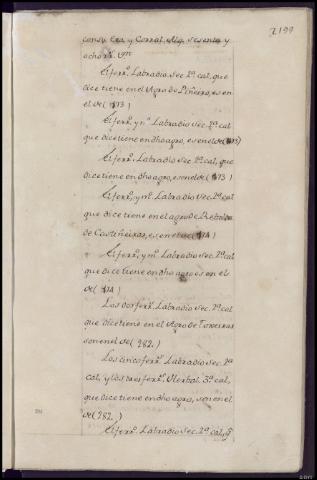 2199
consu Era, y Corral, Alq. sesenta y
ocho r.s v.n
El ferr.o Labradio sec.o 2.a cal. que
dice tiene en el Agro de Piñeiro, es en
el de (173)
El ferr.o, y m.o Labradio sec.o 2.a cal.
que dice tiene en dho agro, es en el de (173)
El ferr.o Labradio sec.o 2.a cal, que
dice tiene en dho agro, es en el de (173)
El ferr.o, y m.o Labradio sec.o 2.a cal
que dice tiene en el agro de
de Castiñeiras, es en el de (174)
El ferr.o, y m.o Labradio sec.o 2.a cal
que dice tiene en dho agro es en el
de (174)
Los dos ferr.s Labradio sec.o 2.a cal
que dice tiene en el Agro de Torreiras
son en el de (282.)
Los cinco ferr.s Labradio sec.o 2.a
cal, y los tres ferr.s Herbal 3.a cal,
que dice tiene en dho agro, son en el
de (282.)
El ferr.o Labradio sec.o 2.a cal, q.e